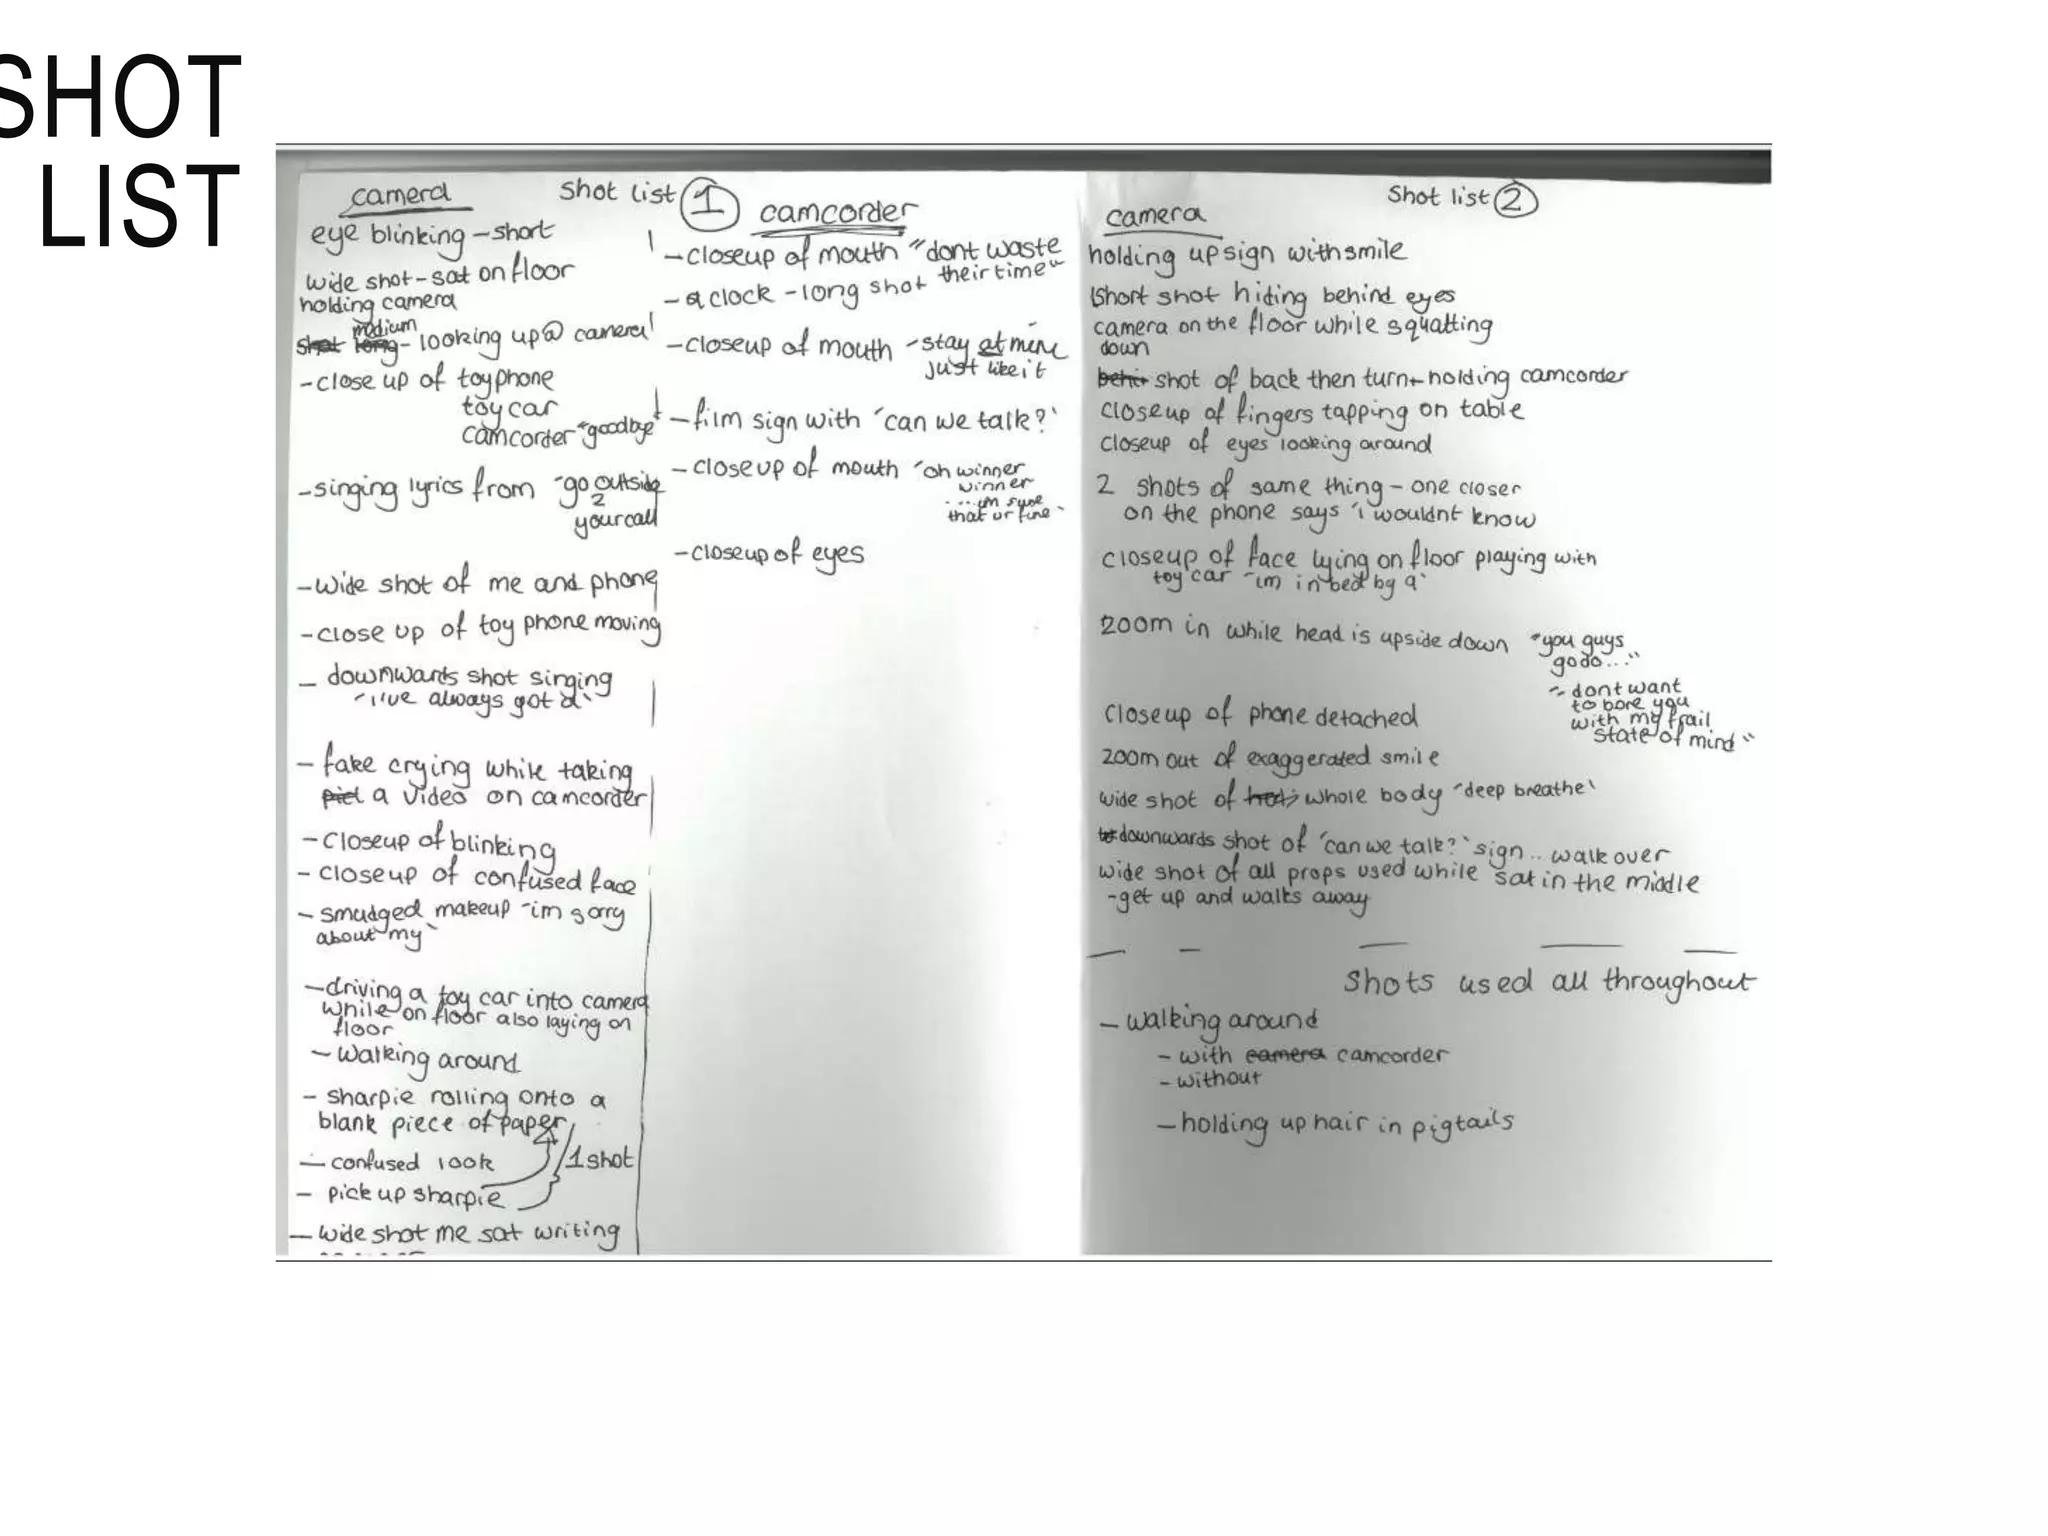 SHOT
LIST
Shot list 1
camera
eye blinking - short
wide shot - sat on floor
holding camera
medium
shot long - looking up @ camera
- close up of toy phone
toy car
camcorder "goodbye"
- singing lyrics from "go outside
2
your call
- wide shot of me and phone
- close up of toy phone moving
- downwards shot singing
"i've always got a"
- fake crying while taking
pict a video on camcorder
- closeup of blinking
- closeup of confused face
- smudged makeup "im sorry
about my"
- driving a toy car into camera
while on floor also laying on
floor
- walking around
- sharpie rolling onto a
blank piece of paper
- confused look
1 shot
- pick up sharpie
- wide shot me sat writing
camcorder
- closeup of mouth "dont waste
their time"
- a clock - long shot
- closeup of mouth - stay at mine
just like it
- film sign with 'can we talk?'
- closeup of mouth 'oh winner
winner
...im sure
that ur fine'
- closeup of eyes
Shot list 2
camera
holding up sign with smile
short shot hiding behind eyes
camera on the floor while squatting
down
behi shot of back then turn - holding camcorder
closeup of fingers tapping on table
closeup of eyes looking around
2 shots of same thing - one closer
on the phone says 'i wouldnt know
closeup of face lying on floor playing with
toy car "im in bed by 9"
zoom in while head is upside down "you guys
go do..."
"dont want
to bore you
with my frail
state of mind"
closeup of phone detached
zoom out of exaggerated smile
wide shot of whole body 'deep breathe'
downwards shot of 'can we talk?' sign.. walk over
wide shot of all props used while sat in the middle
- get up and walks away
Shots used all throughout
- walking around
- with camera camcorder
- without
- holding up hair in pigtails